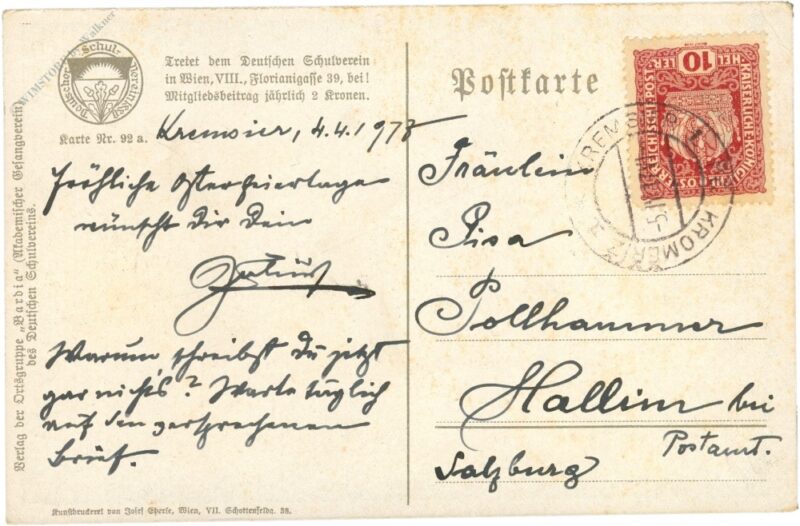 WIMSTORE by Walkner
Deutscher Schulverein 1880
Tretet dem Deutschen Schulverein
in Wien, VIII., Florianigasse 39, bei!
Mitgliedsbeitrag jährlich 2 Kronen.
Karte Nr. 92 a.
Kremsier, 4.4.1917
Fröhliche Osterfeiertage
wünscht dir dein
Warum schreibst du jetzt
gar nichts? Warte täglich
auf den versprochenen
Brief.
Verlag der Ortsgruppe „Bardia“ (Akademischer Gesangverein)
des Deutschen Schulvereins.
Kunstdruckerei von Josef Eberle, Wien, VII. Schottenfeldg. 38.
Postkarte
10
HELLER
KAISERLICHE KÖNIGLICHE
ÖSTERREICHISCHE POST
KREMSIER 1
KROMĚŘÍŽ 1
Fräulein
Pisa
Pollhammer
Hallein bei
Postamt.
Salzburg